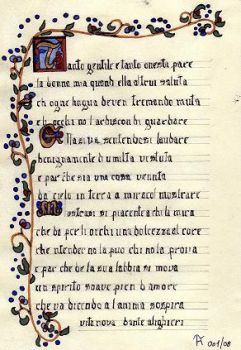 Tanto gentile e tanto onesta pare
la donna mia quand ella altrui saluta
ch ogne lingua deven tremando muta
e li occhi no l ardiscon di guardare
Ella si va sentendosi laudare
benignamente d umilta vestuta
e par che sia una cosa venuta
da cielo in terra a miracol mostrare
Mostrasi si piacente a chi la mira
che da per li occhi una dolcezza al core
che ntender no la puo chi no la prova
e par che de la sua labbia si mova
un spirito soave pien d amore
che va dicendo a l anima sospira
vita nova dante alighieri
001/08